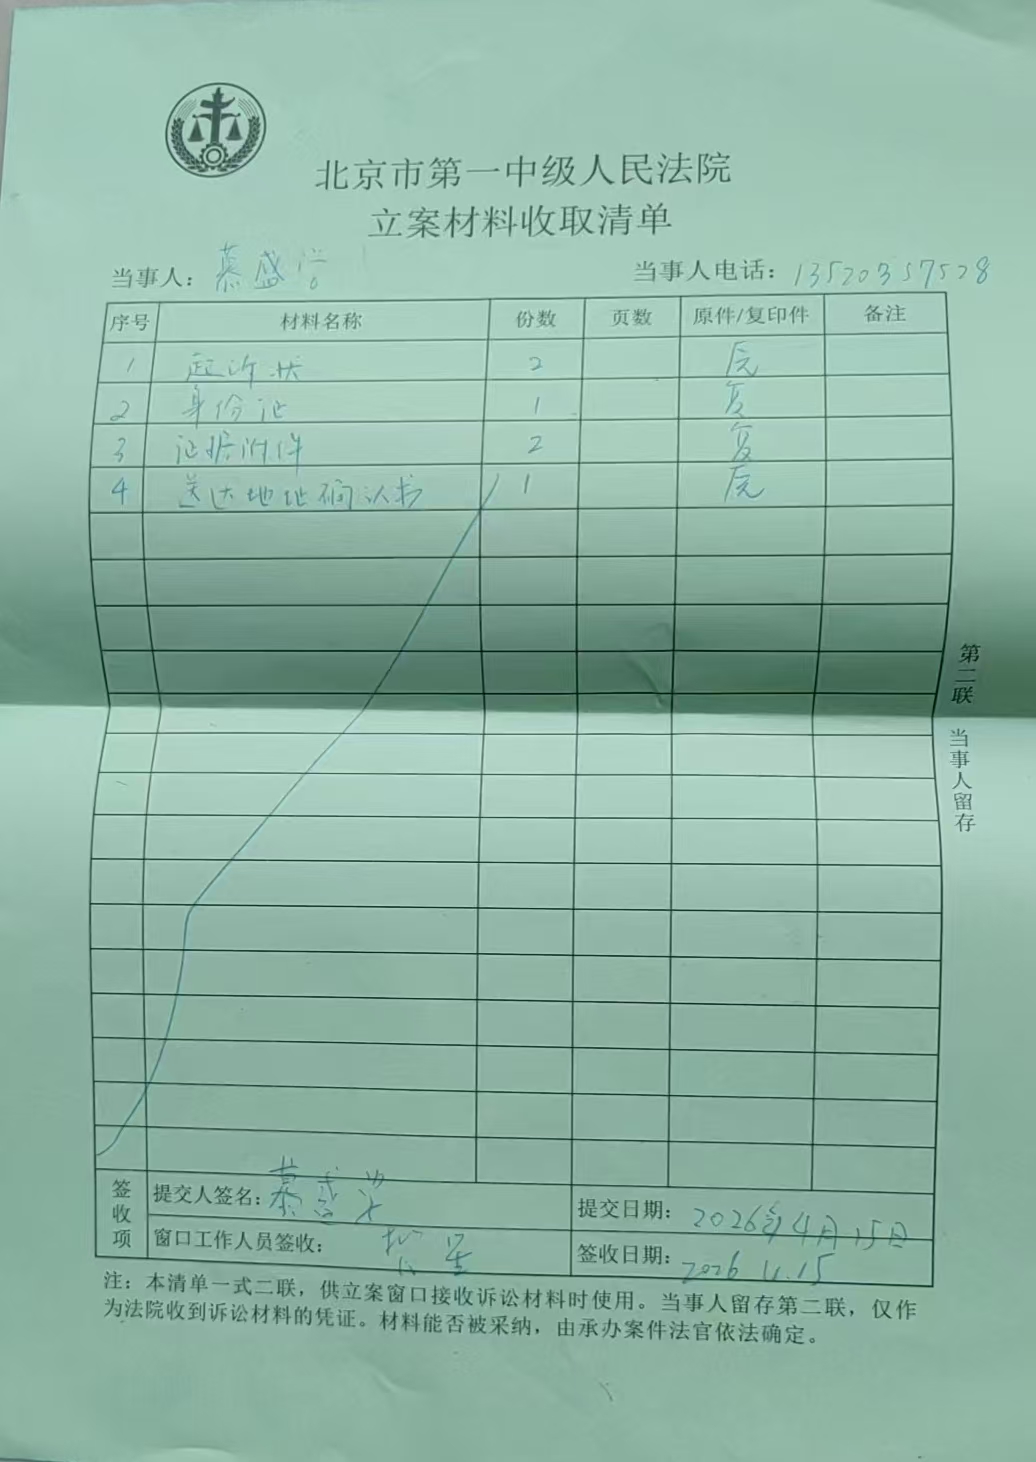 北京市第一中级人民法院
立案材料收取清单
当事人：慕盛 当事人电话：13520357528
序号 材料名称 份数 页数 原件/复印件 备注
1 起诉状 2 原
2 身份证 1 复
3 证据附件 2 复
4 送达地址确认书 1 原
第二联 当事人留存
签收项
提交人签名：慕盛 提交日期：2026年4月15日
窗口工作人员签收： 签收日期：2026 4.15
注：本清单一式二联，供立案窗口接收诉讼材料时使用。当事人留存第二联，仅作
为法院收到诉讼材料的凭证。材料能否被采纳，由承办案件法官依法确定。